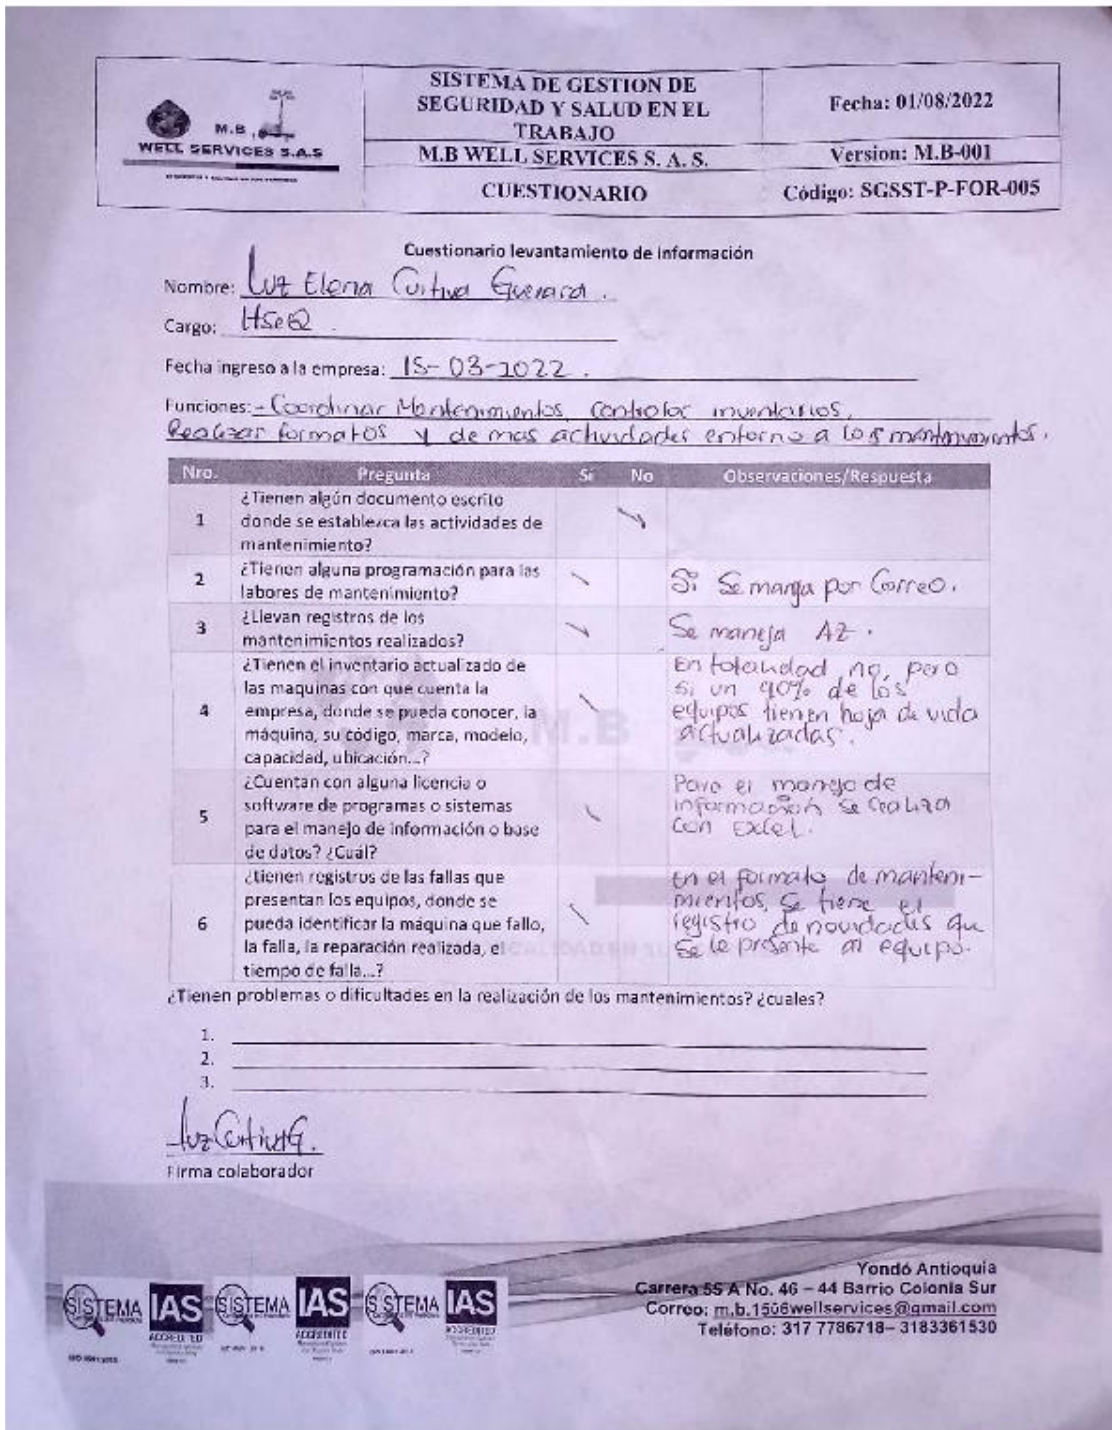 M.B
WELL SERVICES S.A.S
SISTEMA DE GESTION DE
SEGURIDAD Y SALUD EN EL
TRABAJO
Fecha: 01/08/2022
M.B WELL SERVICES S. A. S.
Version: M.B-001
CUESTIONARIO
Código: SGSST-P-FOR-005
Cuestionario levantamiento de información
Nombre: Luz Elena Cuitiva Guevara.
Cargo: HSeQ.
Fecha ingreso a la empresa: 15-03-2022.
Funciones: - Coordinar Mantenimientos, controlar inventarios,
Realizar formatos y de mas actividades entorno a los mantenimientos.
Nro. Pregunta Si No Observaciones/Respuesta
1
¿Tienen algún documento escrito
donde se establezca las actividades de
mantenimiento?
2
¿Tienen alguna programación para las
labores de mantenimiento?
Si Se maneja por Correo.
3
¿Llevan registros de los
mantenimientos realizados?
Se maneja AZ.
4
¿Tienen el inventario actualizado de
las maquinas con que cuenta la
empresa, donde se pueda conocer, la
máquina, su código, marca, modelo,
capacidad, ubicación...?
En totalidad no, pero
si un 90% de los
equipos tienen hoja de vida
actualizadas.
5
¿Cuentan con alguna licencia o
software de programas o sistemas
para el manejo de información o base
de datos? ¿Cuál?
Para el manejo de
información se realiza
con Excel.
6
¿tienen registros de las fallas que
presentan los equipos, donde se
pueda identificar la máquina que fallo,
la falla, la reparación realizada, el
tiempo de falla...?
En el formato de manteni-
mientos, se tiene el
registro de novedades que
se le presente al equipo.
M.B
¿Tienen problemas o dificultades en la realización de los mantenimientos? ¿cuales?
1.
2.
3.
Luz Cuitiva G.
Firma colaborador
Yondó Antioquia
Carrera 55 A No. 46 – 44 Barrio Colonia Sur
Correo: m.b.1506wellservices@gmail.com
Teléfono: 317 7786718– 3183361530
SISTEMA IAS SISTEMA IAS SISTEMA IAS
ACCREDITED ACCREDITED ACCREDITED